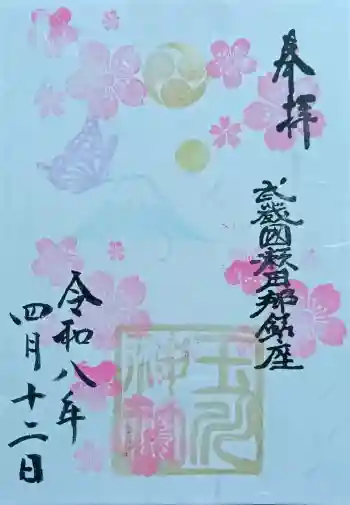 奉拝
武蔵國瀬田郷鎮座
玉川
神社
令和八年
四月十二日